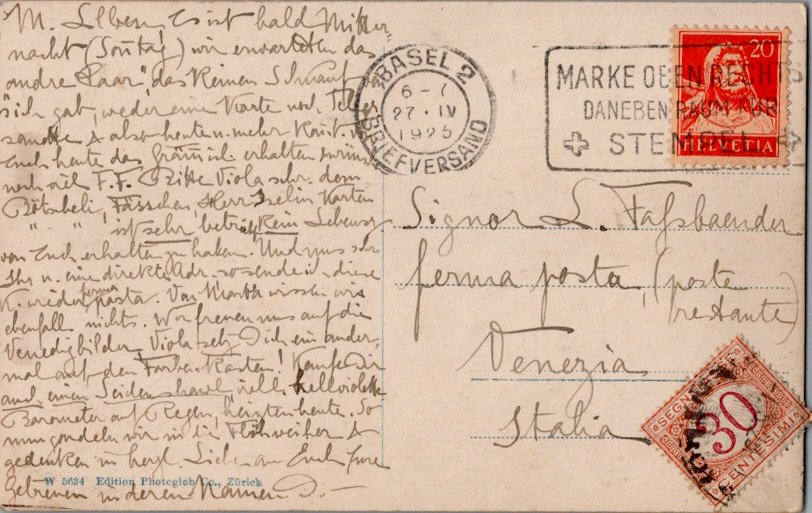 M. L. Ihr Es ist bald Mitter-
nacht (Sonntag) wir erwarteten das
andre Paar, das keinen Schnauf von
sich gab, weder eine Karte noch Tele
sandte & also heute n. mehr kommt.
Euch heute das erhalten
noch viel Bitte Viola schr. dem
Bötscheli, Fässchen, Herr Iselin Karten
" " ist sehr betrübt kein Lebensz.
von Euch erhalten zu haben. Und nun
Ihr n. eine direkte Adr. so sende ich diese
K. wieder ferma posta. Von Martha wissen wir
ebenfalls nichts. Wir freuen uns auf die
Venedigbilder Viola setz Dich ein ander-
mal auf den Farben Kasten! Kaufe Dir
auch einen Seidenshawl viell. hellviolett
Barometer auf Regen, heizten heute. So
nun gondeln wir in die &
gedenken in herzl. Liebe an Euch Eure
getreuen in deren Namen D.-
W 5634 Edition Photoglob Co., Zürich
BASEL 2
6-7
27·IV
1925
BRIEFVERSAND
MARKE OBEN RECHTS
DANEBEN RAUM FÜR
STEMPEL
20
HELVETIA
Signor L. Faßbaender
ferma posta, (poste
restante)
Venezia
Italia
SEGNATASSE
30
CENTESIMI